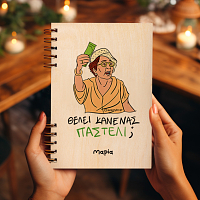 ΘΕΛΕΙ ΚΑΝΕΝΑΣ
ΠΑΣΤΕΛΙ ;
Μαρία